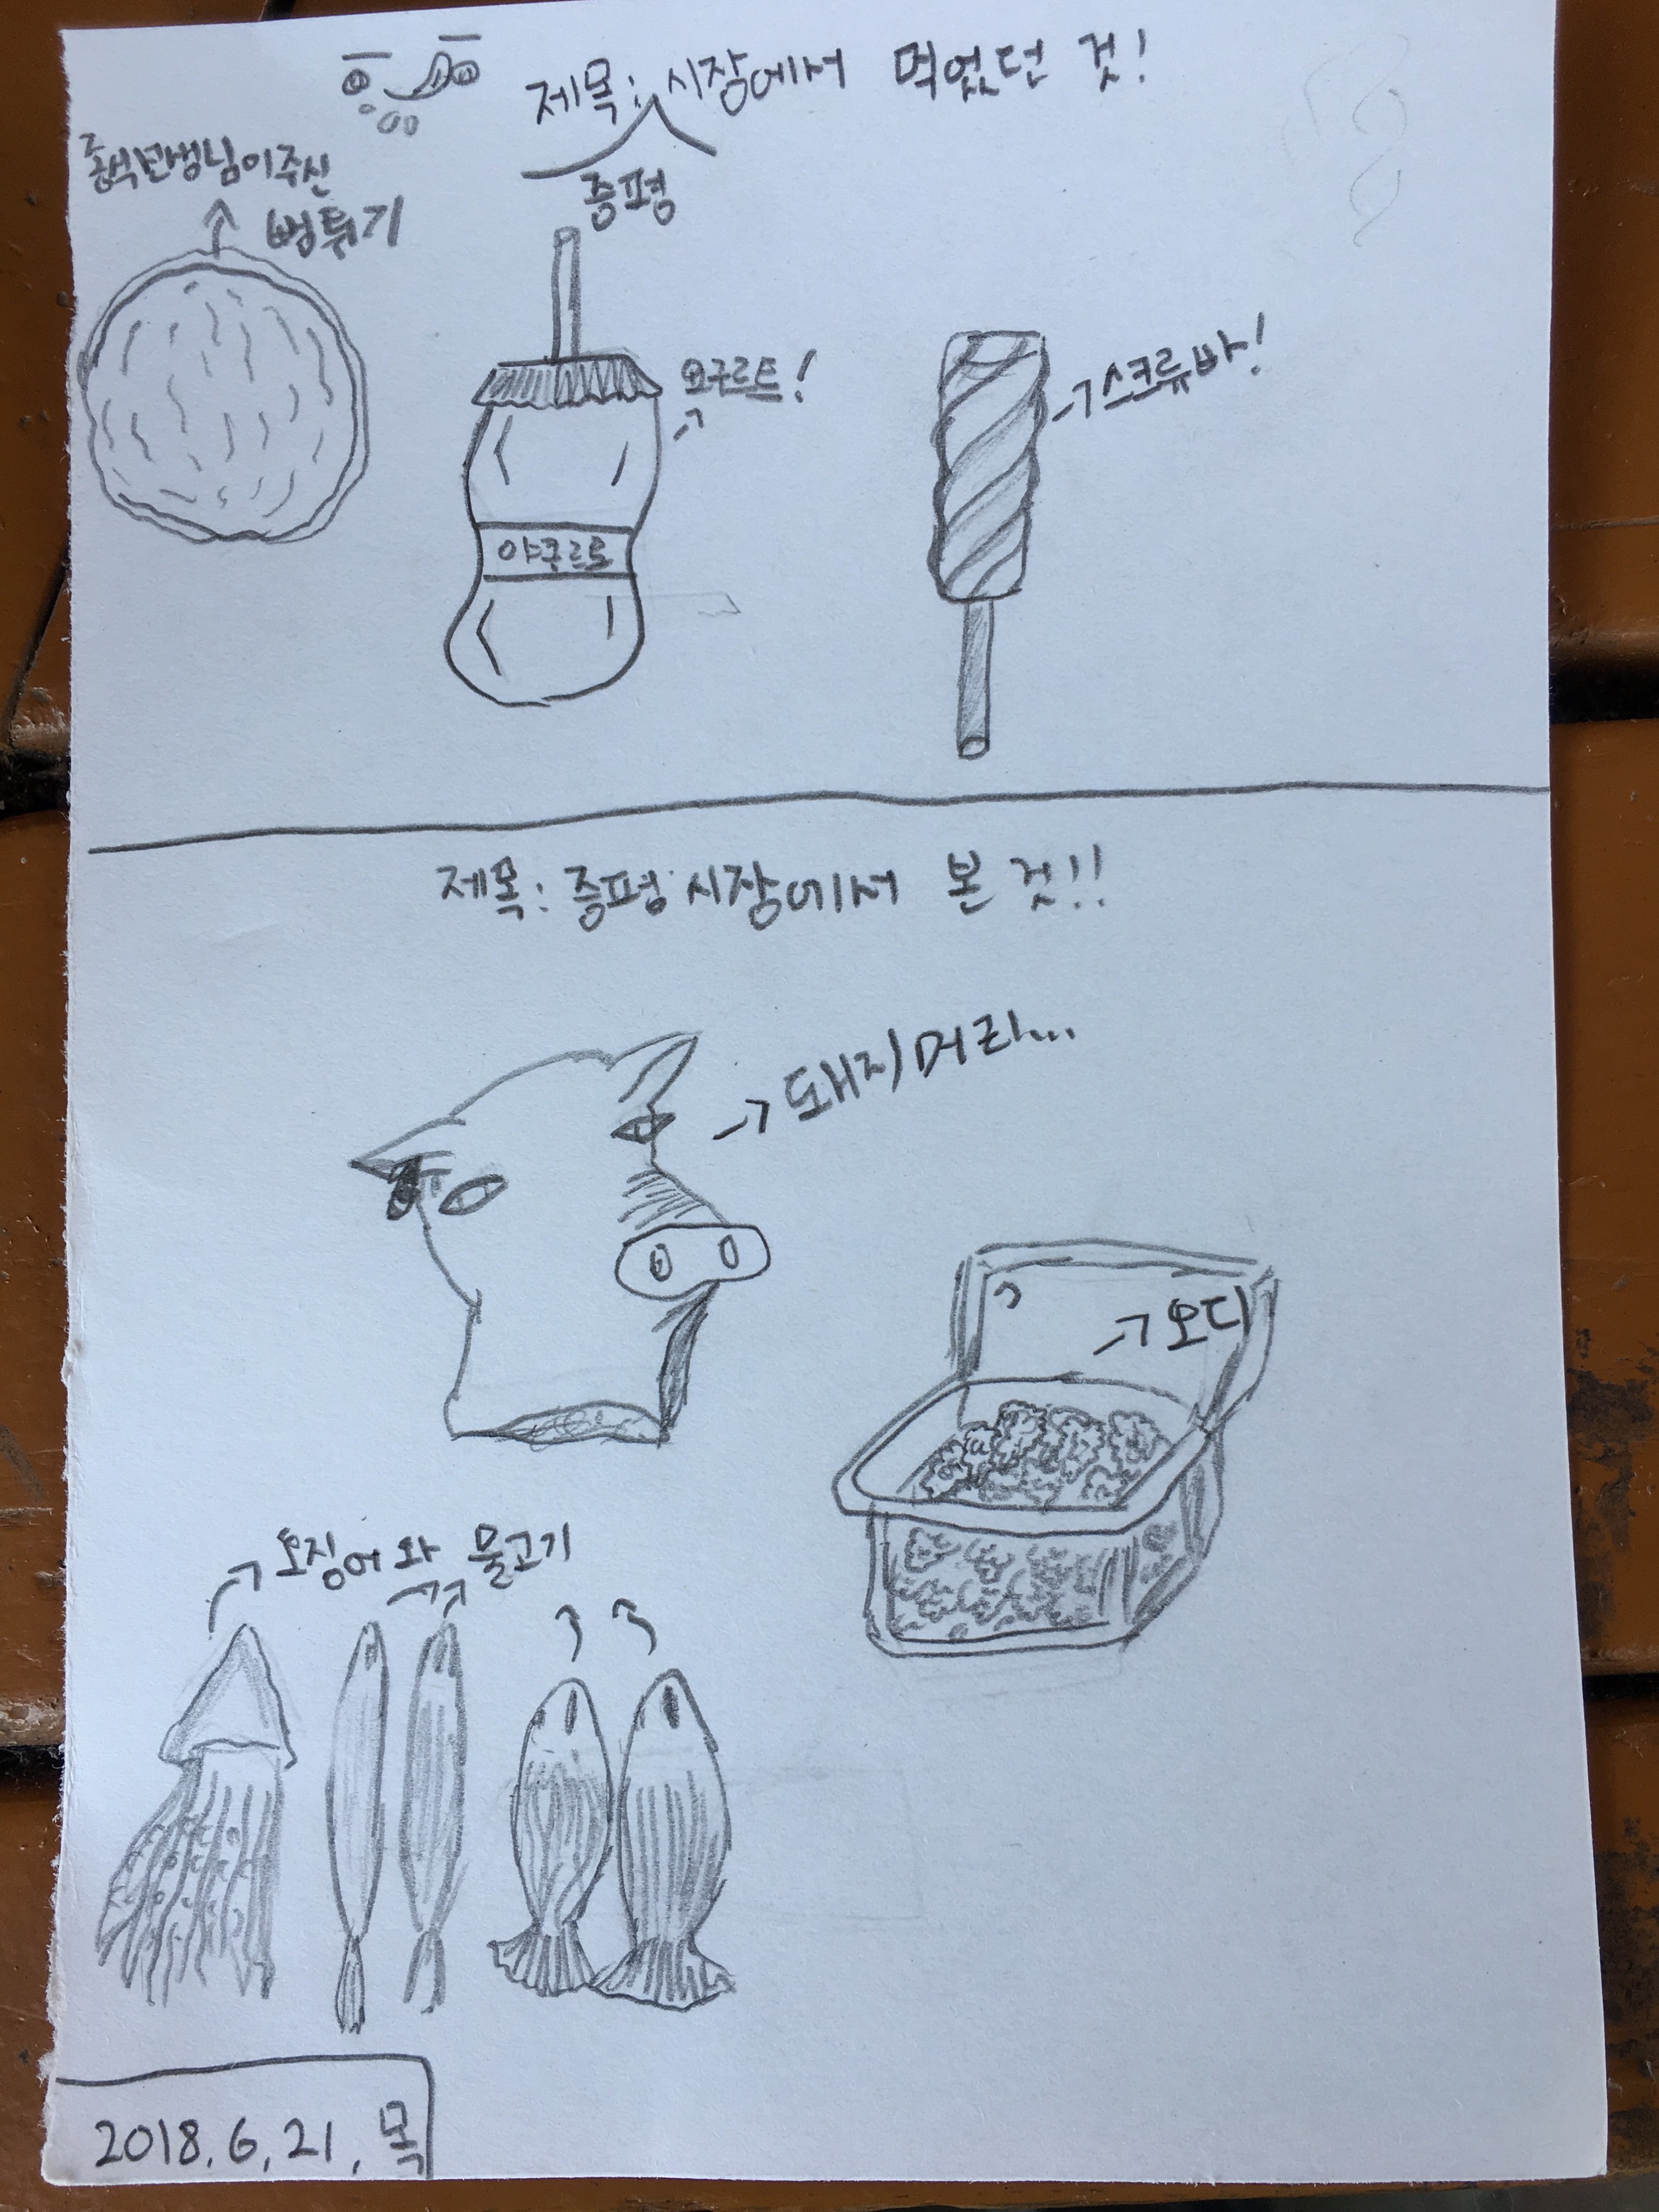 제목: 시장에서 먹었던 것!
증평
선생님이주신
뻥튀기
요구르트!
야쿠르트
→스크류바!
제목: 증평 시장에서 본 것!!
→돼지머리...
→오디
→오징어와 물고기
2018. 6. 21. 목